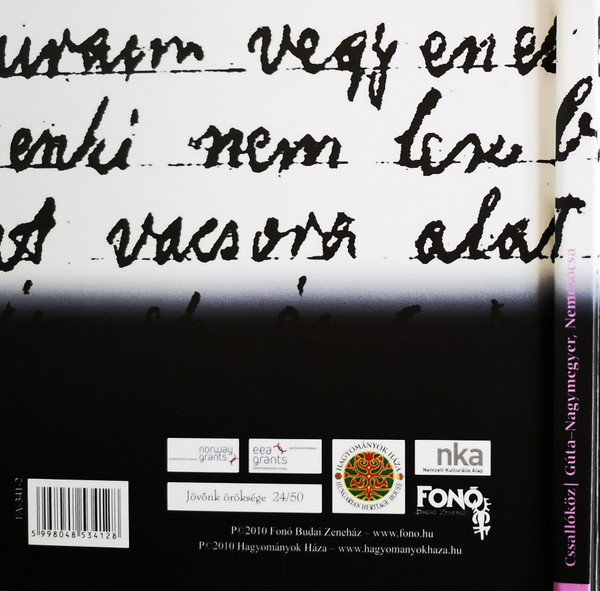 uram vegyenek
enki nem lesz b
vacsora alat
norway grants
eea grants
HAGYOMÁNYOK HÁZA
HUNGARIAN HERITAGE HOUSE
nka
Nemzeti Kulturális Alap
Jövőnk öröksége 24/50
FONÓ
Budai Zeneház
FA-341-2
5 998048 534128
P©2010 Fonó Budai Zeneház – www.fono.hu
P©2010 Hagyományok Háza – www.hagyomanyokhaza.hu
Csallóköz | Gúta–Nagymegyer, Nemesócsa